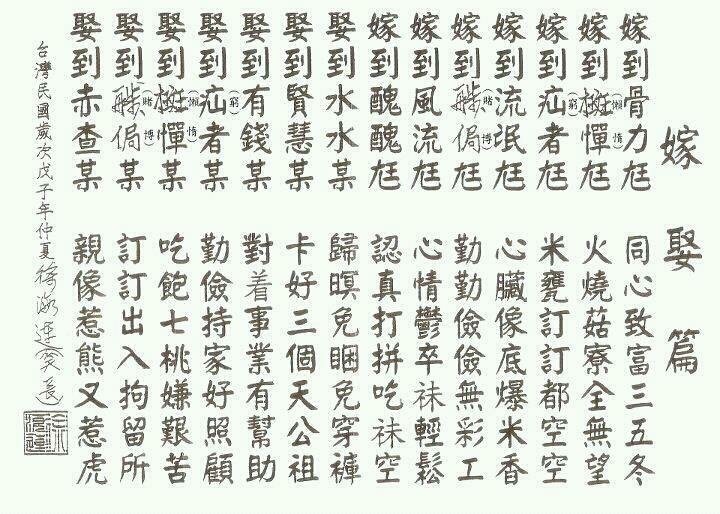 嫁娶篇
嫁到骨力尫 同心致富三五冬
嫁到憚(懶惰)尫 火燒菇寮全無望
嫁到疝者(窮)尫 米甕訂訂都空空
嫁到流氓尫 心臟像底爆米香
嫁到侷(賭博)尫 勤勤儉儉無彩工
嫁到風流尫 心情鬱卒祙輕鬆
嫁到醜醜尫 認真打拼吃祙空
娶到水水某 歸暝免睏免穿褲
娶到賢慧某 卡好三個天公祖
娶到有錢某 對着事業有幫助
娶到疝者(窮)某 勤儉持家好照顧
娶到憚(懶惰)某 吃飽七桃嫌艱苦
娶到侷(賭博)某 訂訂出入拘留所
娶到赤查某 親像惹熊又惹虎
台灣民國歲次戊子年仲夏